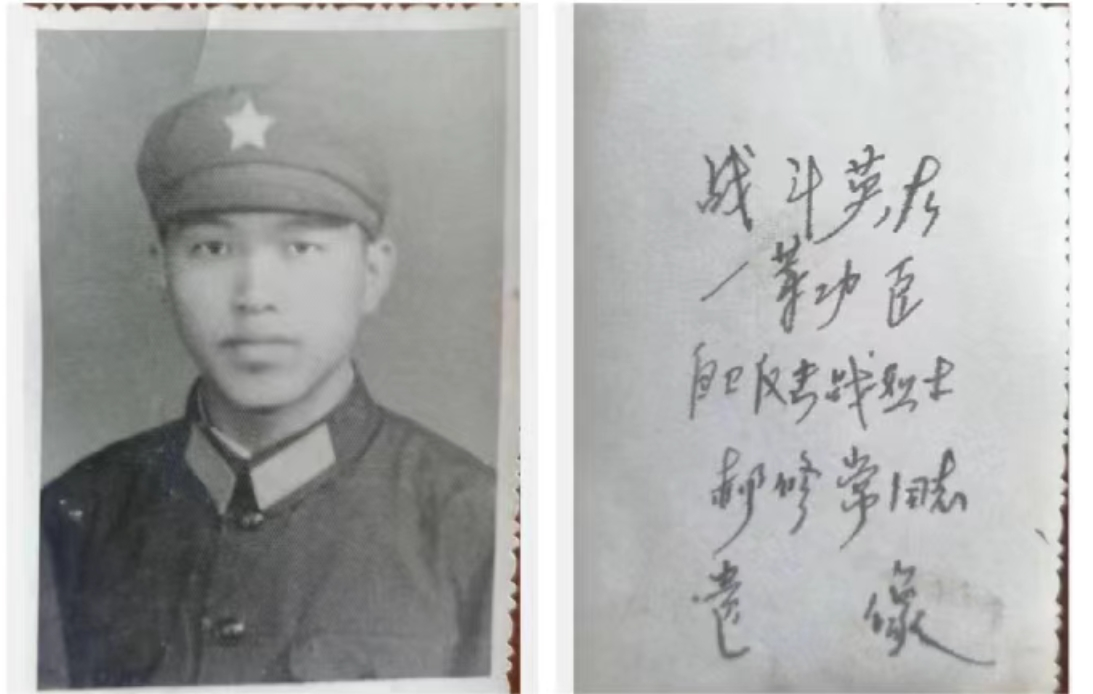 战斗英雄
一等功臣
自卫反击战烈士
郝修常同志
遗像